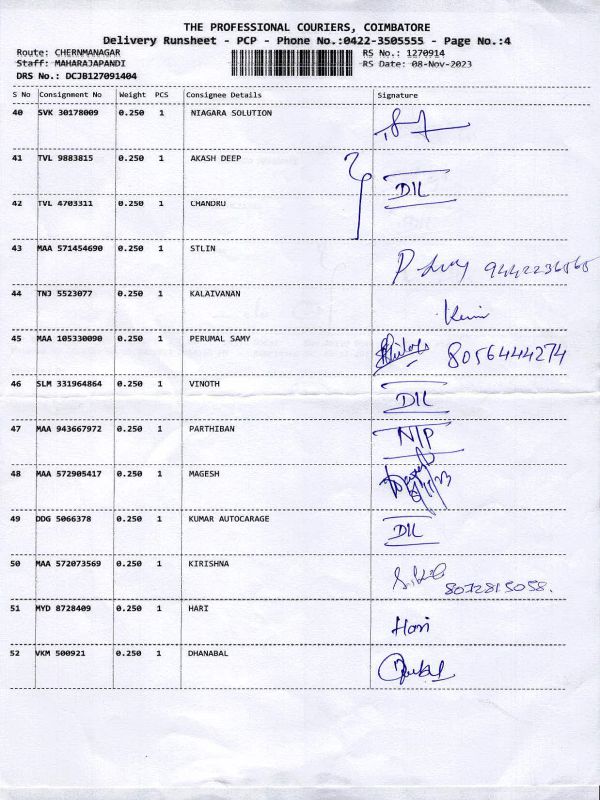 THE PROFESSIONAL COURIERS, COIMBATORE
Delivery Runsheet - PCP - Phone No.:0422-3505555 - Page No.:4
Route: CHERNMANAGAR RS No.: 1270914
Staff: MAHARAJAPANDI RS Date: 08-Nov-2023
DRS No.: DCJB127091404
S No Consignment No Weight PCS Consignee Details Signature
40 SVK 30178009 0.250 1 NIAGARA SOLUTION
41 TVL 9883815 0.250 1 AKASH DEEP D/L
42 TVL 4703311 0.250 1 CHANDRU
43 MAA 571454690 0.250 1 STLIN
44 TNJ 5523077 0.250 1 KALAIVANAN
45 MAA 105330090 0.250 1 PERUMAL SAMY 8056444274
46 SLM 331964864 0.250 1 VINOTH D/L
47 MAA 943667972 0.250 1 PARTHIBAN N/P
48 MAA 572905417 0.250 1 MAGESH
49 DDG 5066378 0.250 1 KUMAR AUTOCARAGE D/L
50 MAA 572073569 0.250 1 KIRISHNA 8072815058.
51 MYD 8728409 0.250 1 HARI Hari
52 VKM 500921 0.250 1 DHANABAL